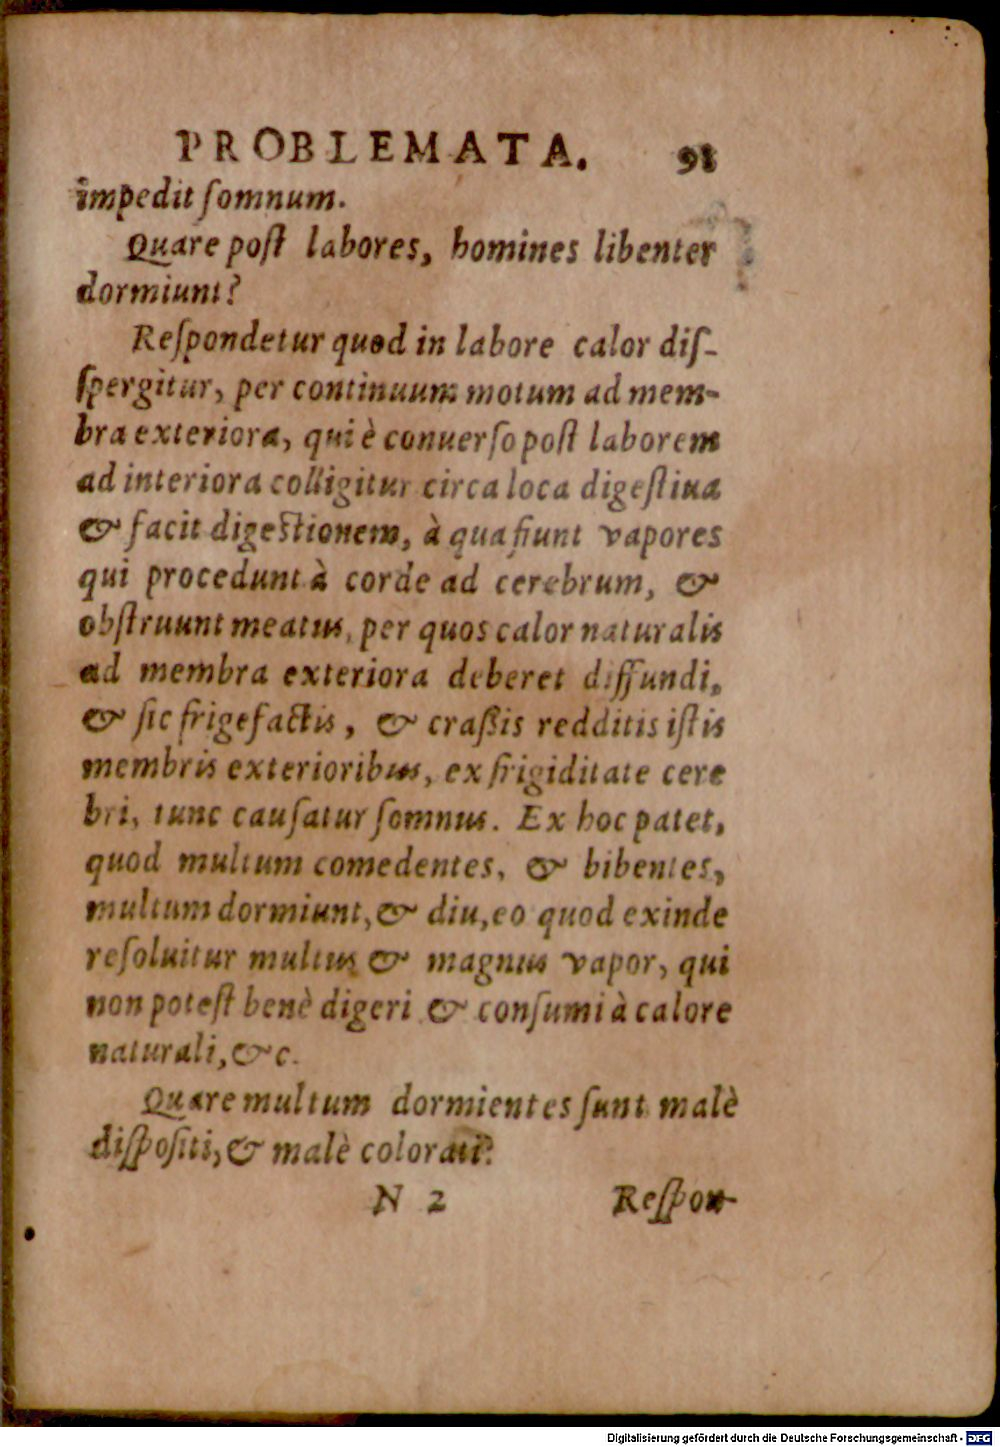 PROBLEMATA. 98
impedit ſomnum.
Quare poſt labores, homines libenter
dormiunt?
Reſpondetur quod in labore calor diſ-
ſpergitur, per continuum motum ad mem-
bra exteriora, qui è conuerſo poſt laborem
ad interiora colligitur circa loca digeſtiua
& facit digeſtionem, à qua fiunt vapores
qui procedunt à corde ad cerebrum, &
obſtruunt meatus, per quos calor naturalis
ad membra exteriora deberet diffundi,
& ſic frigefactis, & craßis redditis iſtis
membris exterioribus, ex frigiditate cere
bri, tunc cauſatur ſomnus. Ex hoc patet,
quod multum comedentes, & bibentes,
multum dormiunt, & diu, eo quod exinde
reſoluitur multus & magnus vapor, qui
non poteſt benè digeri & conſumi à calore
naturali, &c.
Quare multum dormientes ſunt malè
diſpoſiti, & malè colorati?
N 2 Reſpon-
Digitalisierung gefördert durch die Deutsche Forschungsgemeinschaft - DFG